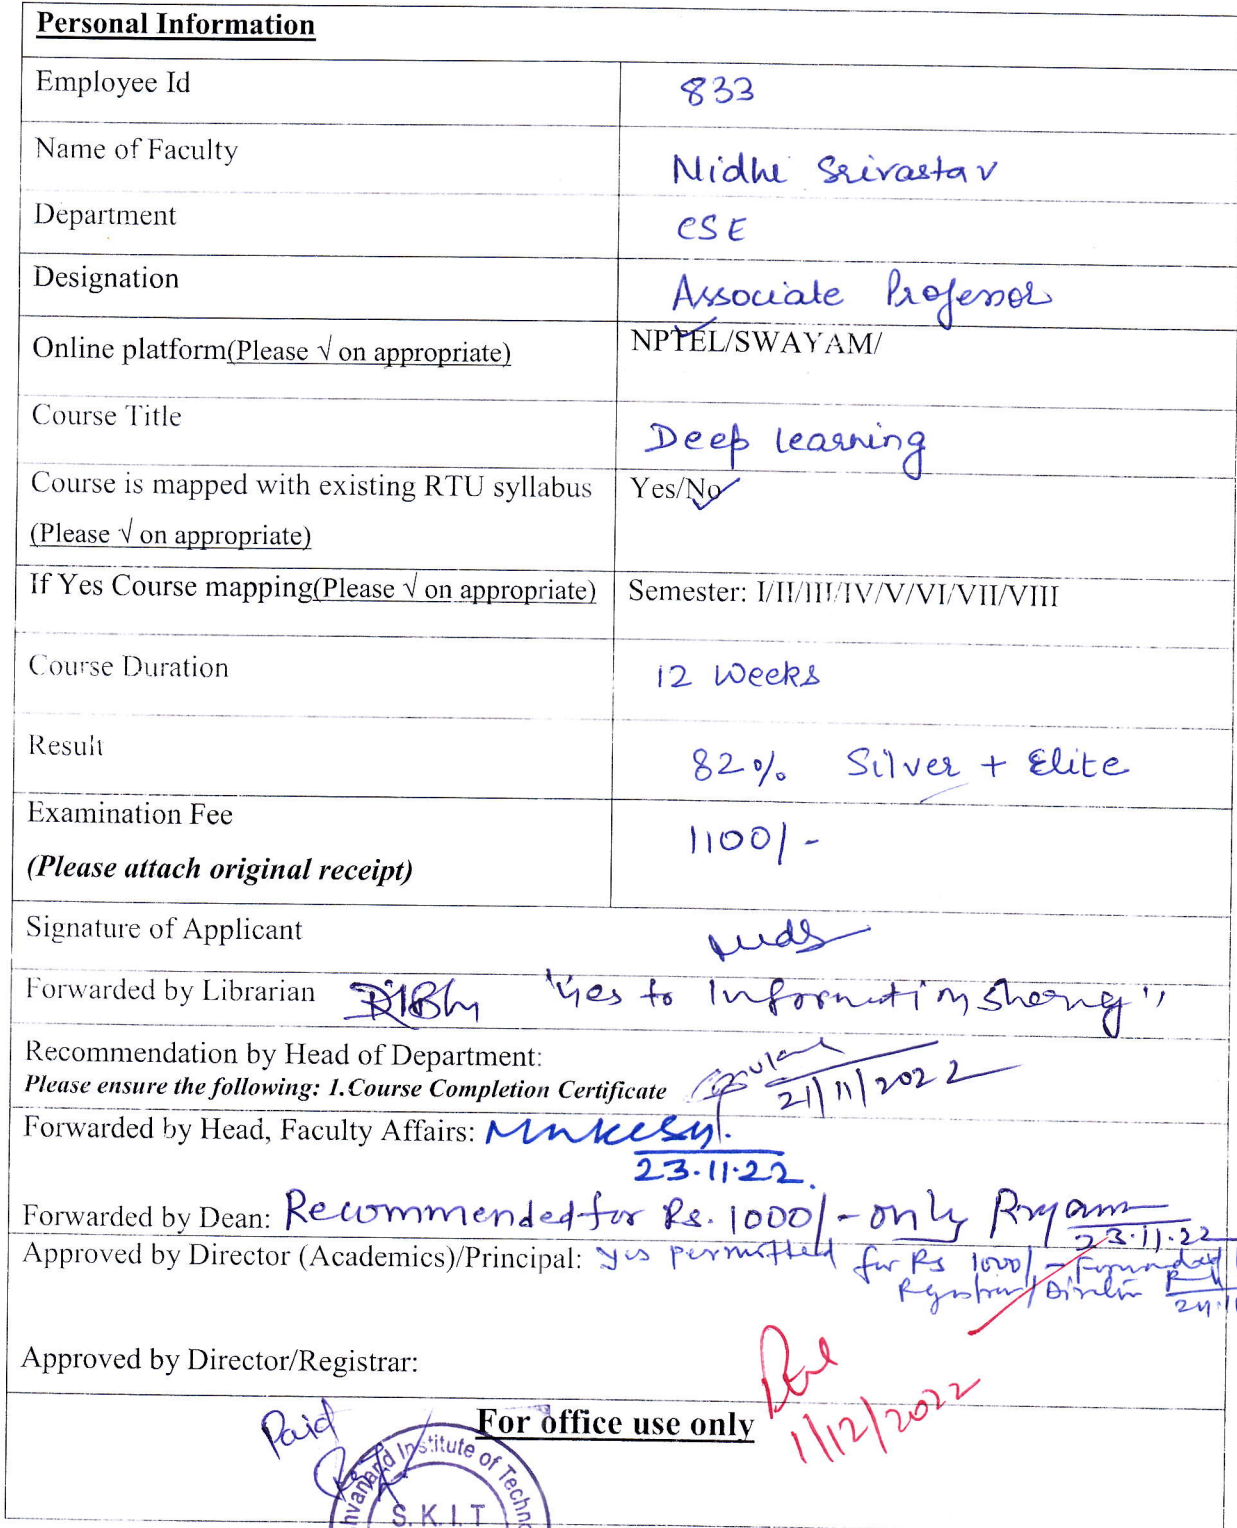 Personal Information
Employee Id 833
Name of Faculty Nidhi Srivastav
Department CSE
Designation Associate Professor
Online platform(Please √ on appropriate) NPTEL/SWAYAM/
Course Title Deep learning
Course is mapped with existing RTU syllabus Yes/No
(Please √ on appropriate)
If Yes Course mapping(Please √ on appropriate) Semester: I/II/III/IV/V/VI/VII/VIII
Course Duration 12 Weeks
Result 82% Silver + Elite
Examination Fee 1100/-
(Please attach original receipt)
Signature of Applicant
Forwarded by Librarian "Yes to Information
Recommendation by Head of Department:
Please ensure the following: 1.Course Completion Certificate 21/11/2022
Forwarded by Head, Faculty Affairs:
23.11.22
Forwarded by Dean: Recommended for Rs. 1000/- only
23.11.22
Approved by Director (Academics)/Principal: yes permitted for Rs 1000/- Forwarded
Registrar/Director
Approved by Director/Registrar:
1/12/2022
For office use only
Paid
Institute of
S.K.I.T